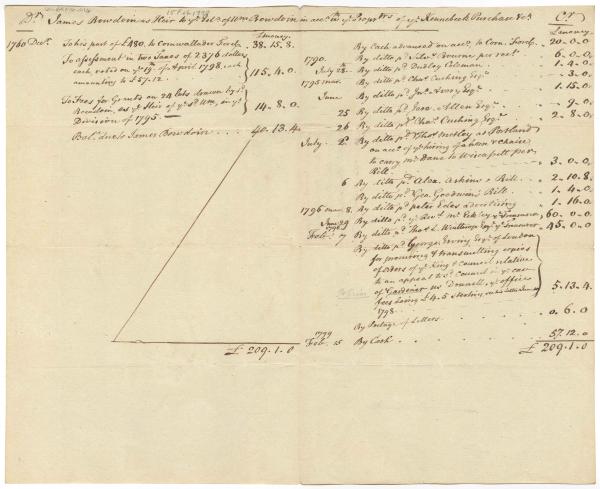 Dr. James Bowdoin as Heir to ye Est. of Wm Bowdoin in acct. wth ye Propr'trs of ye Kennebeck Purchase &c. Cr.
L money.
1760 Decr. To his part of £480. to Cornwallader Forde 38.15.8.
To assessment in two Taxes of 2376 dollars
each, voted on ye 19th of April 1798. each
amounting to £57.12. 115.4.0
To Fees for Grants on 24 lots drawn by J.
Bowdoin, as ye Heir of ye sd Wm, in ye
Division of 1795. 14.8.0
Bal. due to James Bowdoin 40.13.4
£ 209.1.0
L money
By Cash advanced on acct. to Corn. Forde 20.0.0
1790. By ditto pd. Bourne per rect. 6.0.0
July 28. By ditto pd. Dudley Coleman 1.4.0
1795 By ditto pd. Chas. Cushing Esqr. .3.0
June By ditto pd. Jno. Avery Esqr. 1.15.0
25 By ditto pd. Allen Esqr. .9.0
26 By ditto pd. Chas. Cushing Esqr. 2.8.0
July 2d. By ditto pd. Thos. Motley at Portland
on acct. of ye hiring of a horse & chaise
to carry Mr. Dane to Wiscassett per
Bill. 3.0.0
6 By ditto pd. Alexr. Askins a Bill 2.10.8
By ditto pd. Geo. Goodwin's Bill 1.4.0
1796 8. By ditto pd. peter Edes advertising 1.16.0
June 29 By ditto pd. ye Revd. Mr. ye Treasurer 60.0.0
1798 Feb. 7 By ditto pd. Thos. L. Winthrop Esqr. ye Treasurer 45.0.0
By ditto pd. George Erving Esqr. of London
for procuring & transmitting copies
of orders of ye King & Council relative
to an appeal to sd. Council in ye case
of Gardiner vs Donnell, ye office
fees being £4.5 sterling 5.13.4
1798.
By Postage of Letters 0.6.0
1799
Feb. 15 By Cash 57.12.0
£ 209.1.0